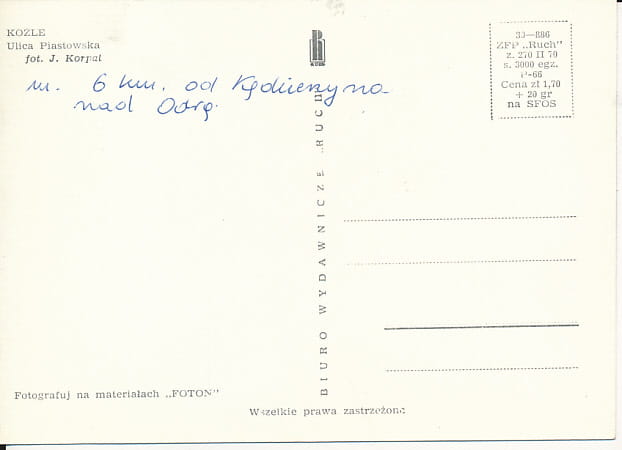 KOŹLE
Ulica Piastowska
fot. J. Korpal
m. 6 km. od Kędzierzyna
nad Odrą.
30—886
ZFP „Ruch"
z. 270 II 70
s. 3000 egz.
P-66
Cena zł 1,70
+ 20 gr
na SFOS
BIURO WYDAWNICZE „RUCH"
Fotografuj na materiałach „FOTON"
Wszelkie prawa zastrzeżone